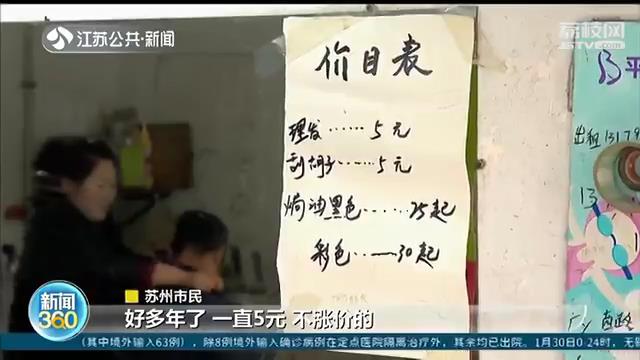 江苏公共·新闻
荔枝网
JSTV.COM
价目表
理发……5元
刮胡子……5元
焗油黑色……25起
彩色……30起
出租
13
新闻
360
苏州市民
好多年了 一直5元 不涨价的
(其中境外输入63例)，除8例境外输入确诊病例在定点医院隔离治疗外，其余均已出院。1月30日0-24时，无